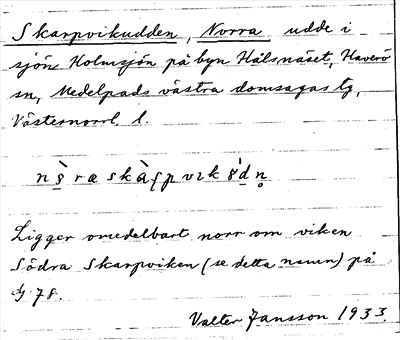 Skarpvikudden, Norra udde i
sjön Holmsjön på byn Hålsnäset, Haverö
sn, Medelpads västra domsagas tg,
Västernorrl. l.
Ligger omedelbart norr om viken
Södra Skarpviken (se detta namn) på
78.
Valter Jansson 1933.